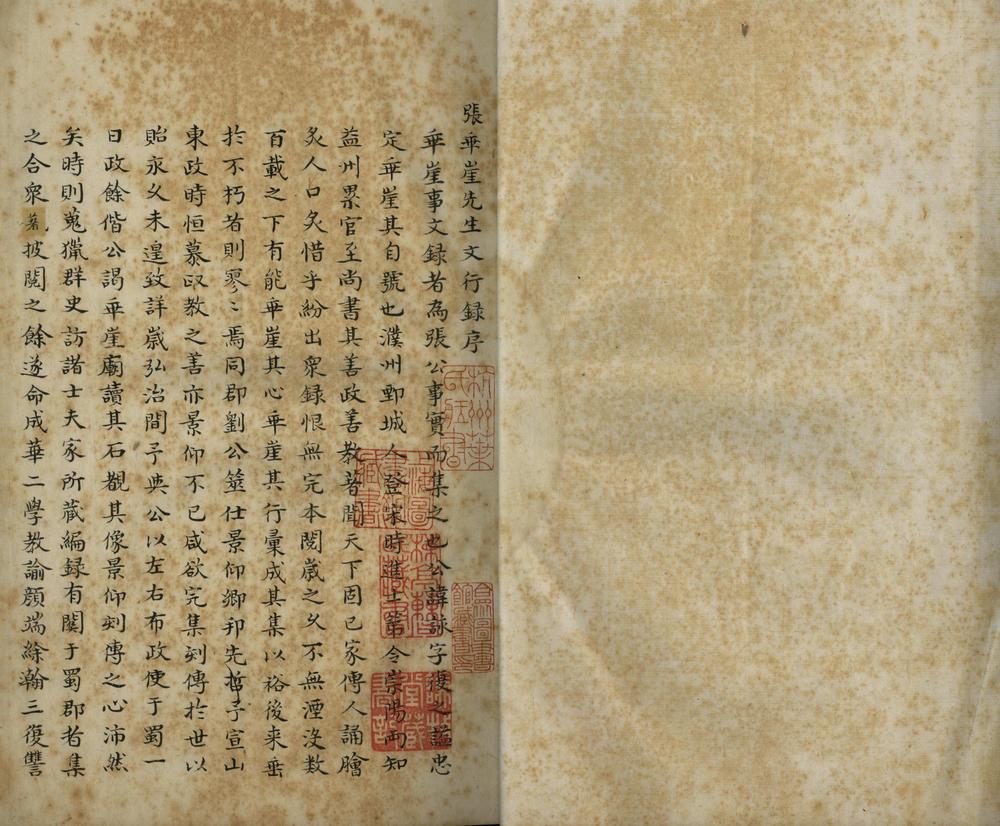 張乖崖先生文行録序
乖崖事文録者為張公事實而集之也公諱詠字復之諡忠
定乖崖其自號也濮州鄄城人登宋時進士第令崇陽両知
益州累官至尚書其善政善教著聞天下固已家傳人誦膾
炙人口炙惜乎紛出衆録恨無完本閱歲之久不無湮沒数
百載之下有能乖崖其心乖崖其行彙成其集以裕後来垂
於不朽者則寥〻焉同郡劉公筮仕景仰鄉邦先哲予宣山
東政時恒慕政教之善亦景仰不已咸欲完集刻傳於世以
貽永久未遑致詳歲弘治間予與公以左右布政使于蜀一
日政餘偕公謁乖崖廟讀其石覩其像景仰刻傳之心沛然
矣時則蒐獵群史訪諸士夫家所蔵編録有関于蜀郡者集
之合衆著披閱之餘遂命成華二學教諭顔端綠瀚三復讐
杭州葉氏藏書